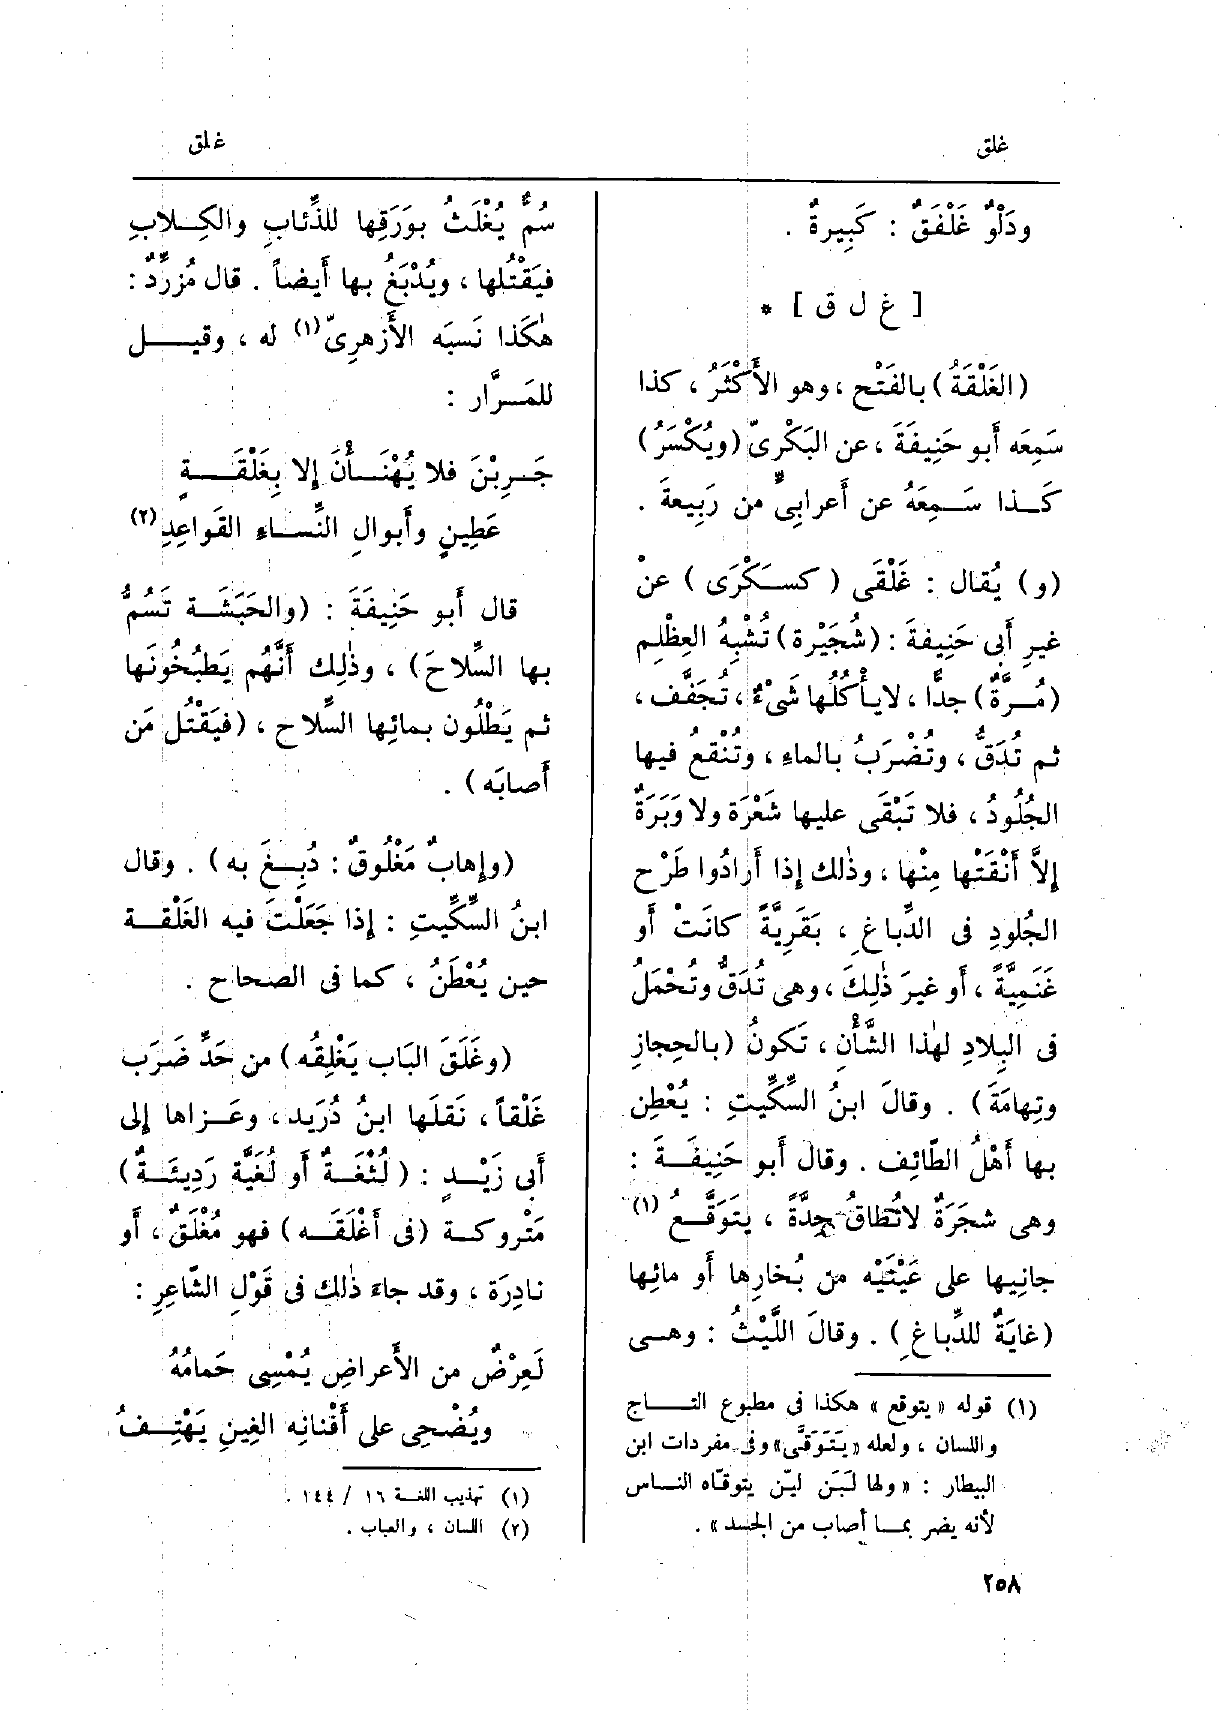 غلق
غلق
ودَلْوٌ غَلْفَقٌ : كَبِيرةٌ .
[ غ ل ق ] *
(الغَلْقَةُ) بالفَتْح ، وهو الأَكْثَرُ ، كذا
سَمِعَه أبو حَنِيفَةَ ، عن البَكْرىّ (ويُكْسَرُ)
كَـذا سَـمِعَهُ عن أعرابِىٍّ من رَبِيعةَ .
(و) يُقال : غَلْقَى ( كسَـكْرَى ) عنْ
غيرِ أبى حَنِيفةَ : (شُجَيْرة) تُشْبِهُ العِظْلِم
(مُـرَّةٌ) جدًّا ، لايأْكُلُها شَىْءٌ ، تُجَفَّف ،
ثم تُدَقُّ ، وتُضْرَبُ بالماءِ ، وتُنْقعُ فيها
الجُلُودُ ، فلا تَبْقَى عليها شَعْرَة ولا وَبَرَةٌ
إلاَّ أَنْقَتْها مِنْها ، وذٰلك إذا أرادُوا طَرْح
الجُلودِ فى الدِّباغِ ، بَقَرِيَّةً كانَتْ أو
غَنَمِيَّةً ، أو غيرَ ذٰلِكَ ، وهى تُدَقُّ وتُحْمَلُ
فى البِلادِ لهٰذا الشَّأْنِ ، تَكونُ (بالحِجازِ
وتِهامَةَ) . وقالَ ابنُ السِّكِّيتِ : يُعْطِن
بها أَهْلُ الطّائِف . وقالَ أبو حَنِيفَـة :
وهى شجَرَةٌ لاتُطاقُ حِدَّةً ، يتَوَقَّـعُ (١)
جانِيها على عَيْنَيْه من بُخارِها أو مائِها
(غايَةٌ للدِّباغِ ) . وقالَ اللَّيْثُ : وهـى
(١) قوله « يتوقع » هكذا فى مطبوع التـاج
واللسان ، ولعله « يَتَوَقَّى » وفى مفردات ابن
البيطار : « ولها لَبَن ليّن يتوقّاه النـاس
لأنه يضر بمـا أصاب من الجسد » .
سُمٌّ يُغْلَثُ بوَرَقِها للذِّئابِ والكِـلابِ
فيَقْتُلها ، ويُدْبَغُ بها أَيضاً . قال مُزرِّدٌ :
هٰكَذا نَسبَه الأَزهرِىّ (١) له ، وقيـل
للمَـرَّار :
جَـرِبْنَ فلا يُهْنَـأْنَ إلا بِغَلْقَـةٍ
عَطِينٍ وأبوالِ النِّسـاءِ القَواعِدِ (٢)
قال أَبو حَنِيفَةَ : (والحَبَشَـة تَسُمُّ
بها السِّلاحَ) ، وذٰلِك أَنَّهُم يَطبُخُونَها
ثم يَطْلُون بمائِها السِّلاح ، (فيَقْتُل مَن
أصابَه) .
(وإهابٌ مَغْلُوقٌ : دُبِـغَ به) . وقال
ابنُ السِّكِّيتِ : إذا جَعَلْتَ فيه الغَلْقـة
حين يُعْطَنُ ، كما فى الصحاح .
(وغَلَقَ البَاب يَغْلِقُه) من حَدِّ ضَرَب
غَلْقاً ، نَقلَها ابنُ دُرَيد ، وعَـزاها إلى
أبى زَيْـدٍ : ( لُثْغَـةٌ أو لُغَيَّة رَدِيئَـةٌ)
مَتْروكـة (فى أَغْلَقَـه) فهو مُغْلَقٌ ، أو
نادِرَة ، وقد جاء ذٰلك فى قَوْلِ الشّاعِرِ :
لَعِرْضٌ من الأَعراضِ يُمْسِى حَمامُهُ
ويُضْحِى على أفْنانِه الغِينِ يَهْتِـفُ
(١) تهذيب اللغـة ١٦ / ١٤٤ .
(٢) اللسان ، والعباب .
٢٥٨